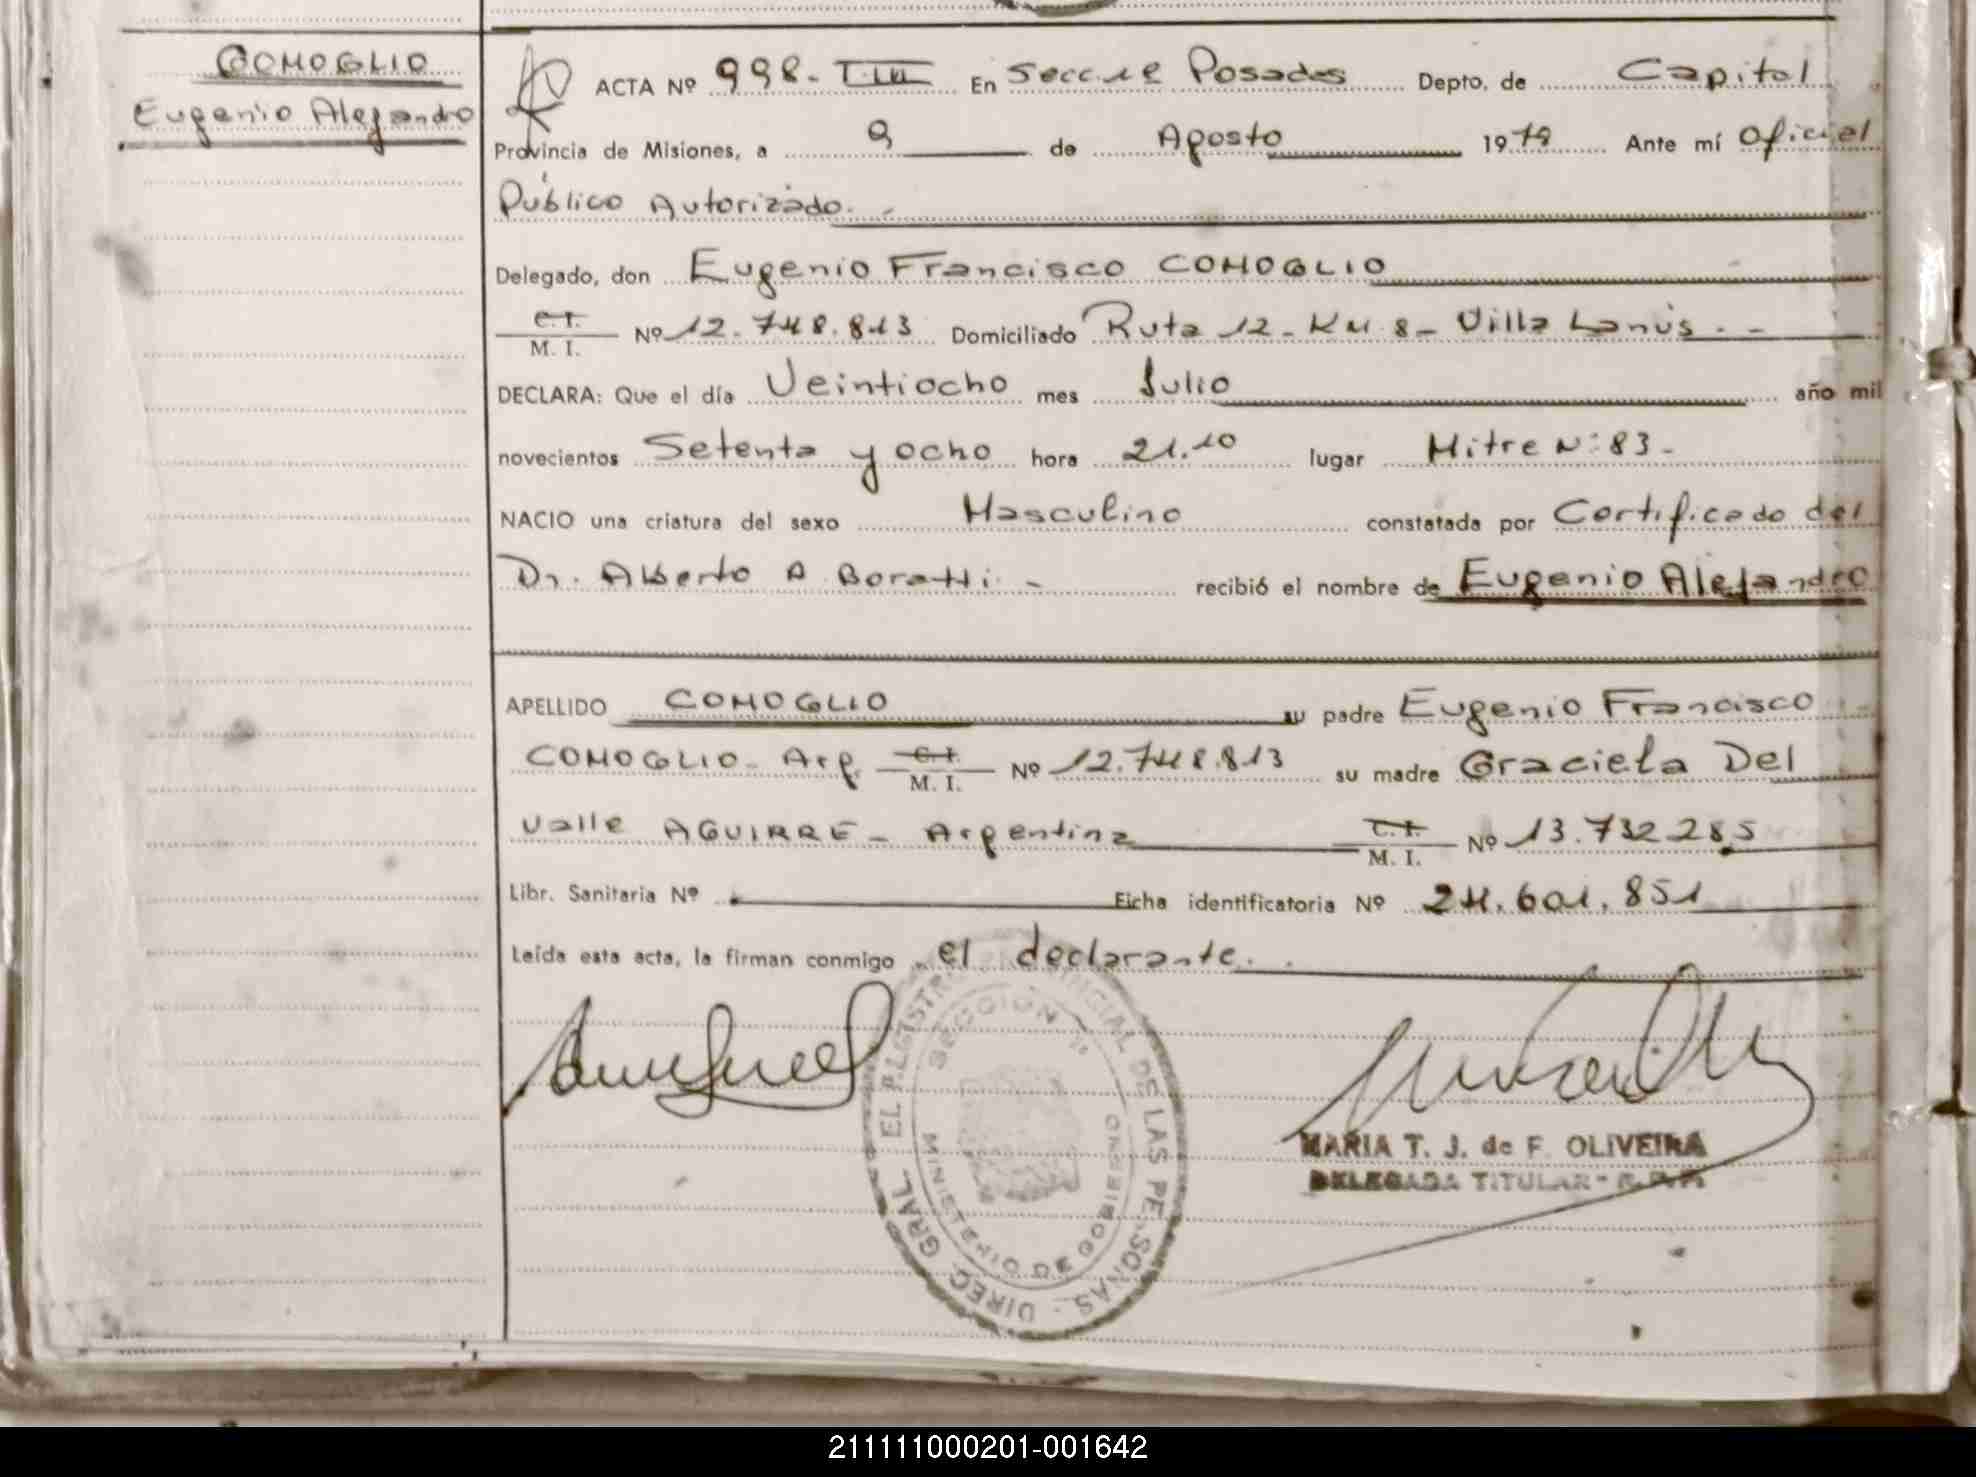 COMOGLIO
Eugenio Alejandro
ACTA Nº 998. T.III En Secc 1e Posadas Depto. de Capital
Provincia de Misiones, a 9 de Agosto 1978 Ante mí Oficial
Público Autorizado.-
Delegado, don Eugenio Francisco COMOGLIO
C.I.
M. I. Nº 12.748.813 Domiciliado Ruta 12- KM 8- Villa Lanús.-
DECLARA: Que el día Veintiocho mes Julio año mil
novecientos Setenta y ocho hora 21.10 lugar Mitre Nº 83-
NACIO una criatura del sexo Masculino constatada por Certificado del
Dr. Alberto A Boratti- recibió el nombre de Eugenio Alejandro
APELLIDO COMOGLIO su padre Eugenio Francisco
COMOGLIO- Arg. C.I.
M. I. Nº 12.748.813 su madre Graciela Del
Valle AGUIRRE- Argentina C.I.
M. I. Nº 13.732.285
Libr. Sanitaria Nº Ficha identificatoria Nº 24.601.851
Leída esta acta, la firman conmigo el declarante.
DIREC. GRAL. DEL REGISTRO PROVINCIAL DE LAS PERSONAS
SECCION 1a
MINISTERIO DE GOBIERNO
MARIA T. J. de F. OLIVEIRA
DELEGADA TITULAR- R.P.P.
211111000201-001642